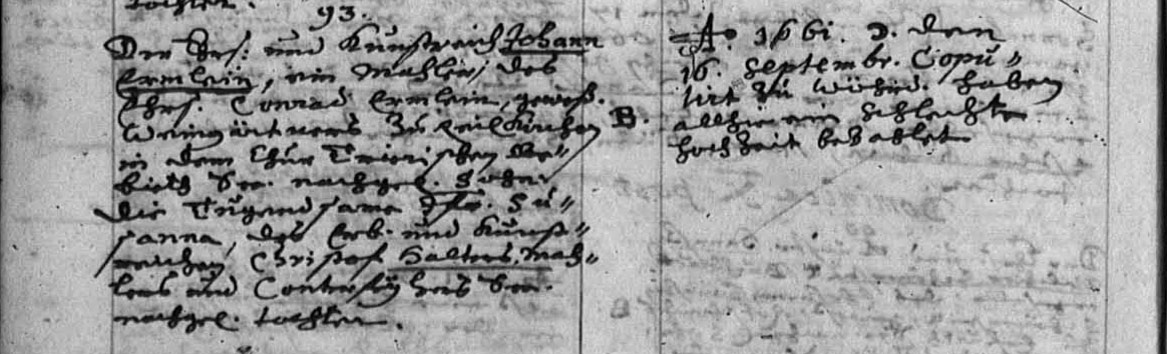 tochter.
93.
Der Ers: und Kunstreich Johann
Ermlein, ein Mahler, des
Ehrs. Conrad Ermlein, gewes.
Weingärtners zu
in dem Chur Trierischen Ge-"
bieth See. nachgel. Sohn
die Tugendsame Jfr. Su-"
sanna, des Erb. und Kunst-"
reichen Christof Halters, Mah-"
lers und Conterfeyters See.
nachgel. tochter.
B.
Ao. 1661. D. den
16. Septembr. Copu-"
lirt zu Wöhrd. haben
allhie ein schlechte
hochzeit bezahlet